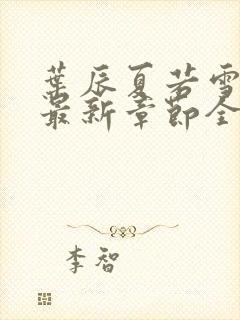 葉辰夏若雪
最新章節全
李智